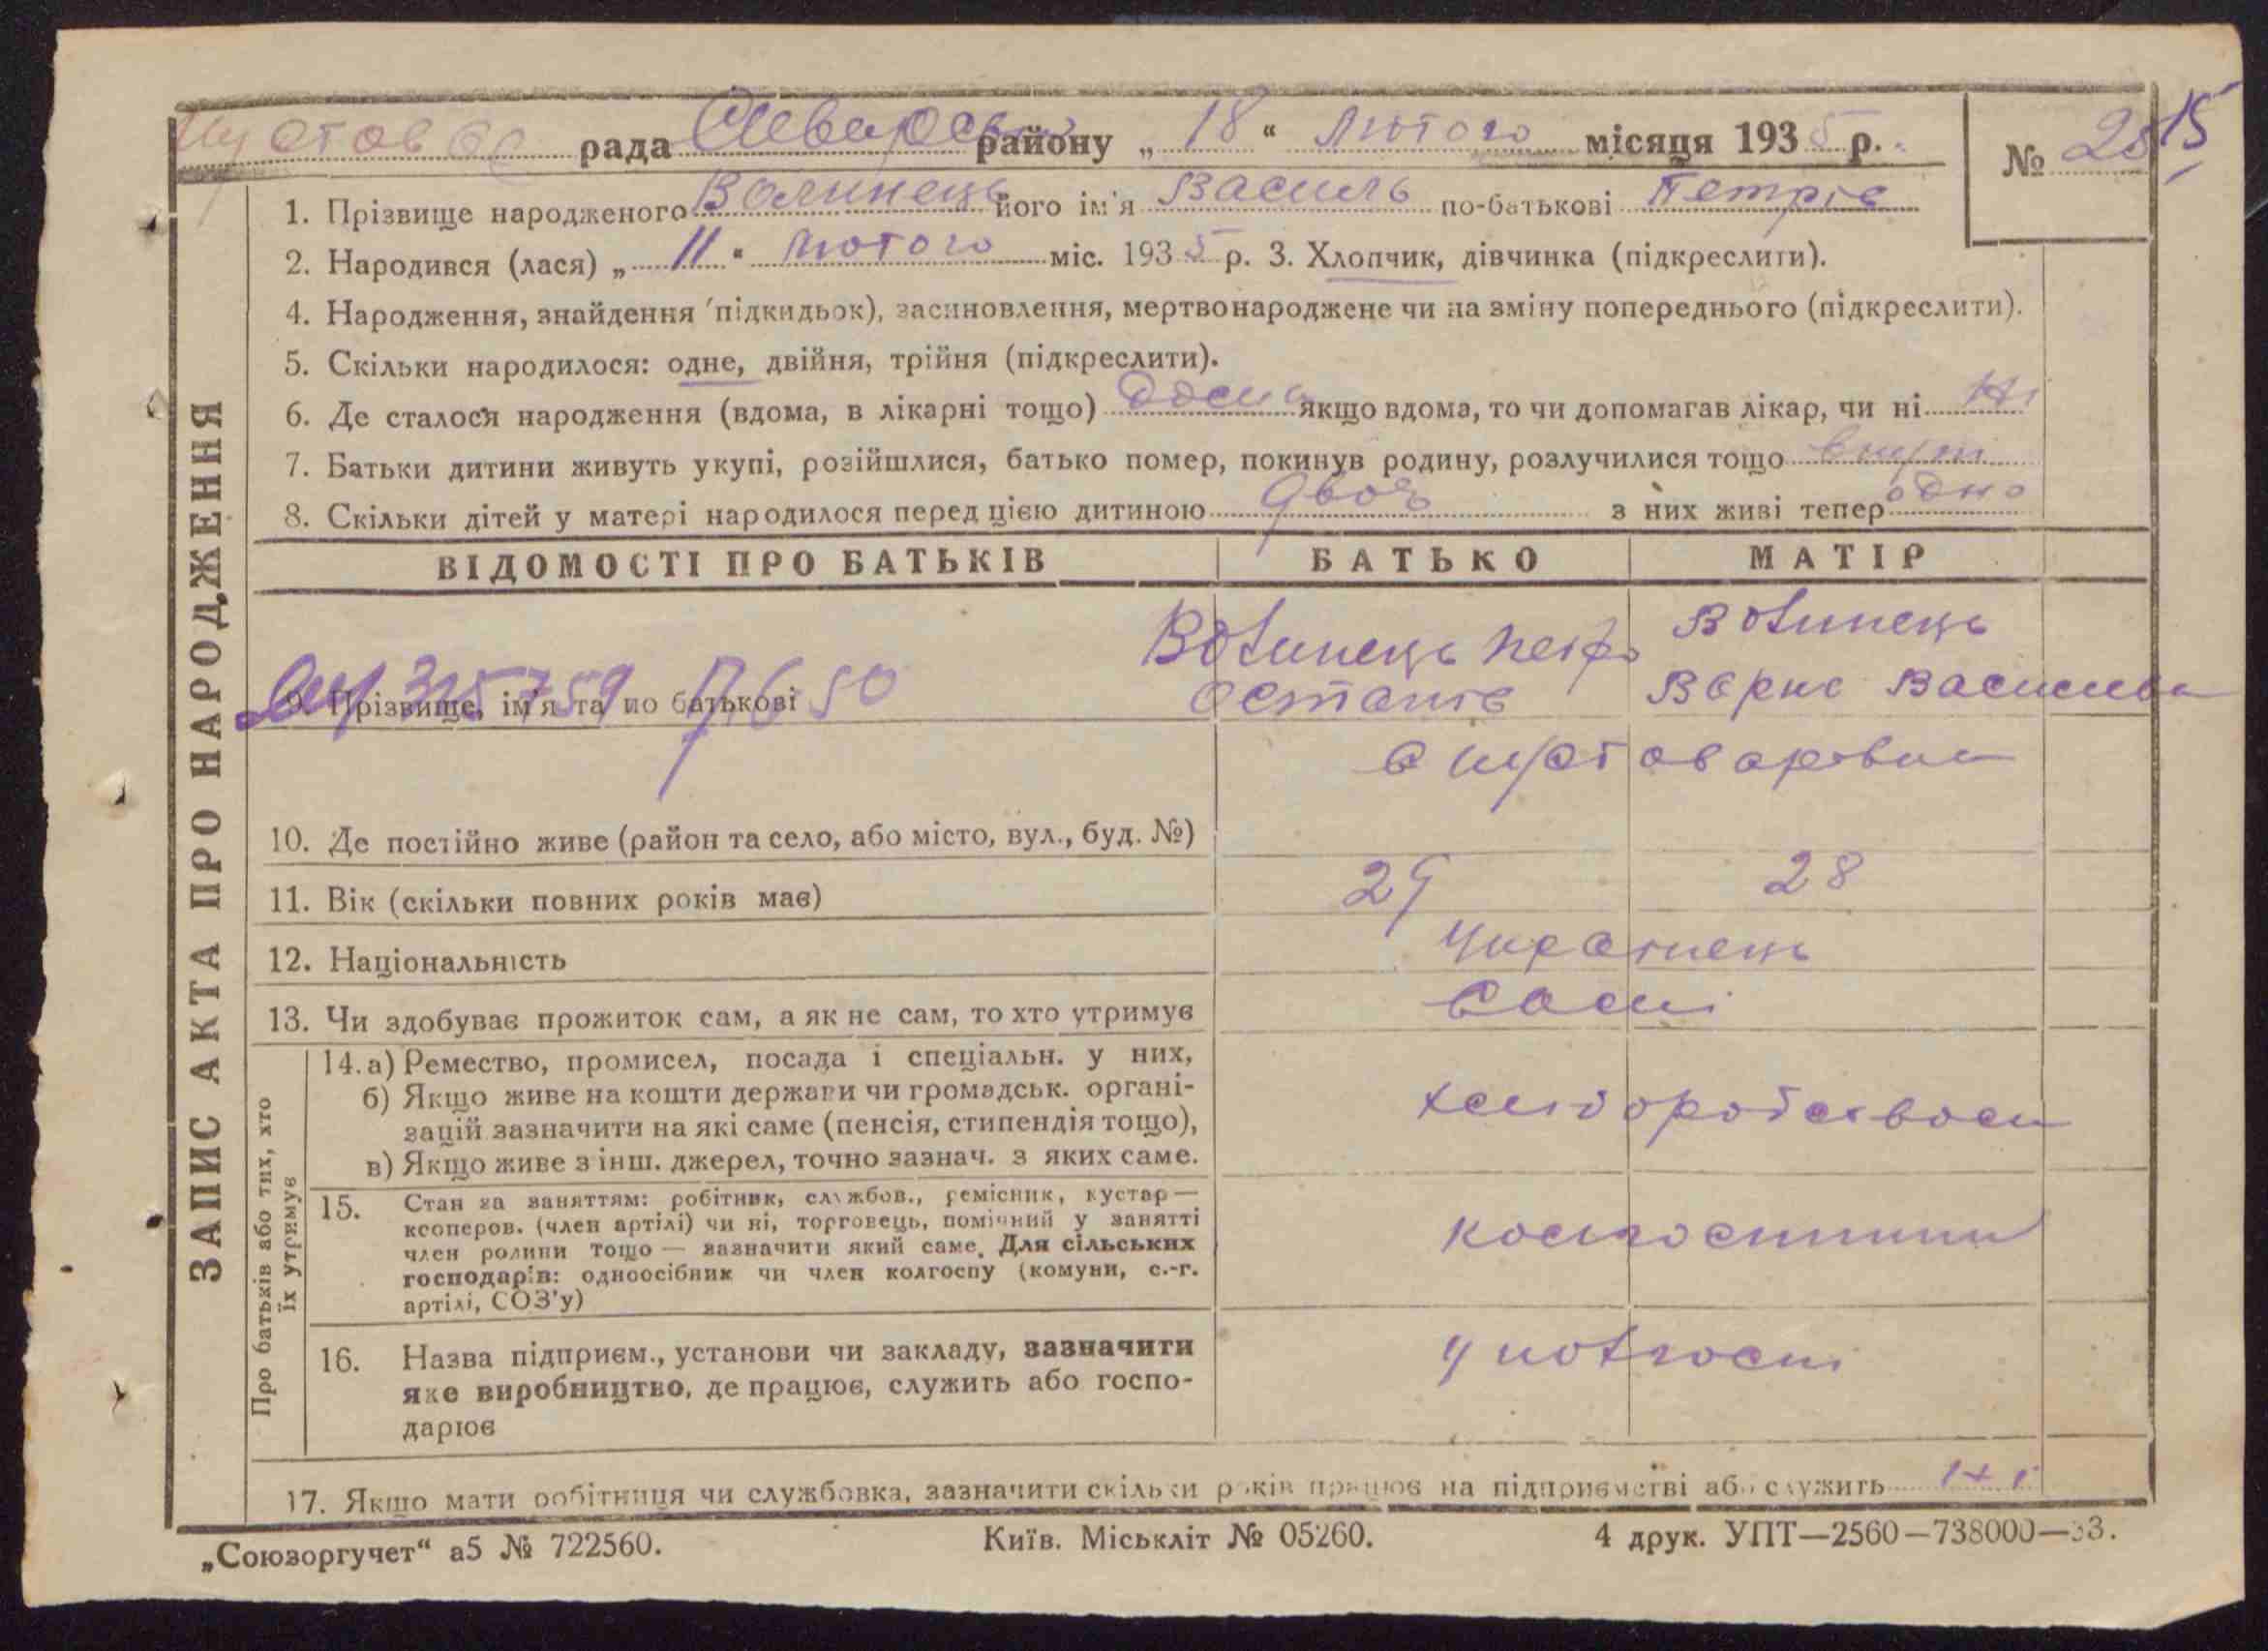 рада району „ 18 “ Лютого місяця 1935 р. № 25 15
1. Прізвище народженого Волинець його ім'я Василь по-батькові Петрів
2. Народився (лася) „ 11 “ Лютого міс. 1935 р. 3. Хлопчик, дівчинка (підкреслити).
4. Народження, знайдення (підкидьок), засиновлення, мертвонароджене чи на зміну попереднього (підкреслити).
5. Скільки народилося: одне, двійня, трійня (підкреслити).
6. Де сталося народження (вдома, в лікарні тощо) якщо вдома, то чи допомагав лікар, чи ні Ні
7. Батьки дитини живуть укупі, розійшлися, батько помер, покинув родину, розлучилися тощо
8. Скільки дітей у матері народилося перед цією дитиною двоє з них живі тепер одно
ВІДОМОСТІ ПРО БАТЬКІВ БАТЬКО МАТІР
9. Прізвище, ім'я та по батькові Волинець Петро Остапів Волинець
10. Де постійно живе (район та село, або місто, вул., буд. №)
11. Вік (скільки повних років має) 29 28
12. Національність Українець
13. Чи здобуває прожиток сам, а як не сам, то хто утримує Самі
14. а) Ремество, промисел, посада і спеціальн. у них,
б) Якщо живе на кошти держави чи громадськ. органі-
зацій зазначити на які саме (пенсія, стипендія тощо),
в) Якщо живе з інш. джерел, точно зазнач. з яких саме.
15. Стан за заняттям: робітник, службов., ремісник, кустар —
кооперов. (член артілі) чи ні, торговець, помічний у занятті
член родини тощо — зазначити який саме. Для сільських
господарів: одноосібник чи член колгоспу (комуни, с.-г.
артілі, СОЗ'у)
16. Назва підприєм., установи чи закладу, зазначити
яке виробництво, де працює, служить або госпо-
дарює
у колгоспі
17. Якщо мати робітниця чи службовка, зазначити скільки років працює на підприємстві або служить
ЗАПИС АКТА ПРО НАРОДЖЕННЯ
Про батьків або тих, хто
їх утримує
„Союзоргучет“ а5 № 722560. Київ. Міськліт № 05260. 4 друк. УПТ—2560—738000—33.